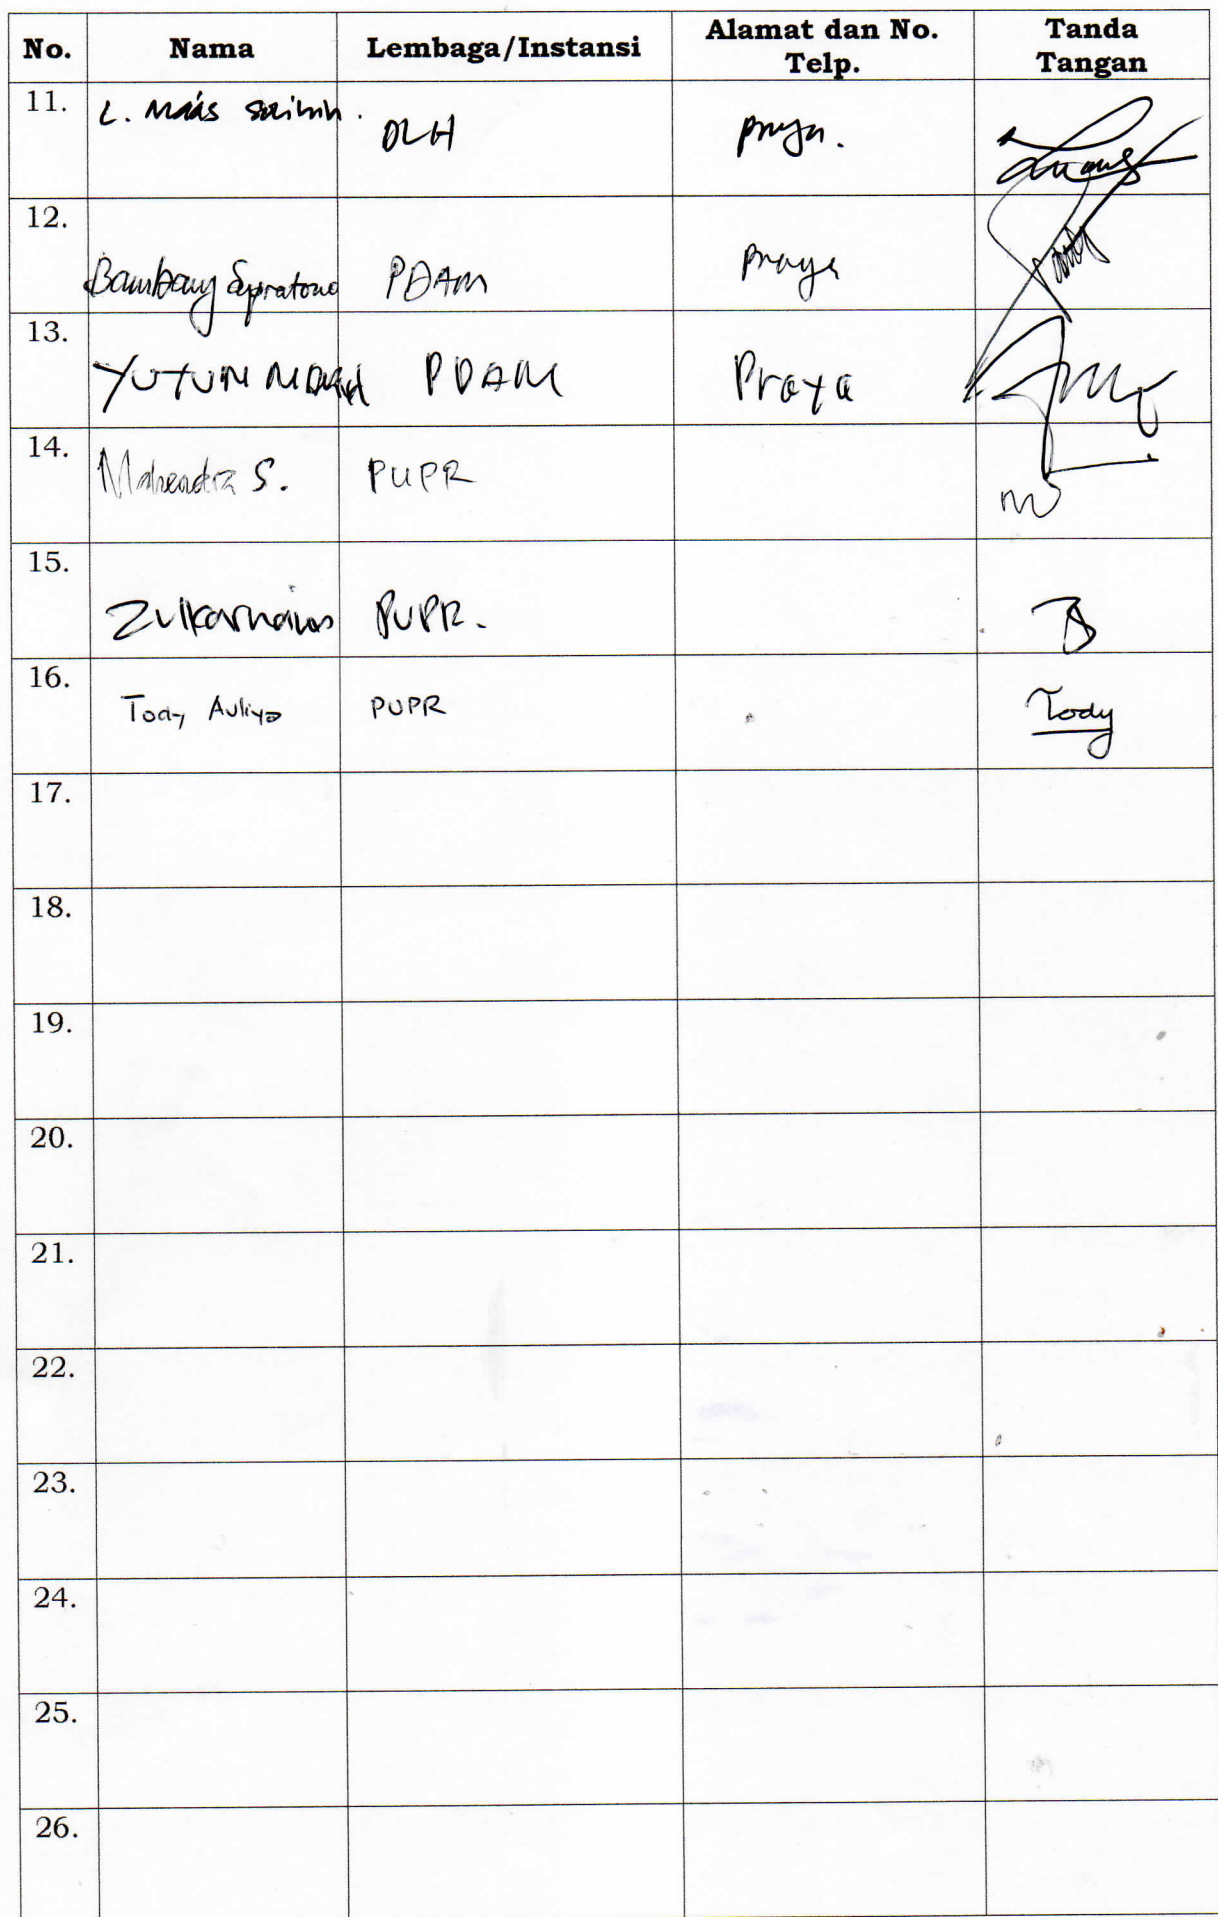 No. Nama Lembaga/Instansi Alamat dan No. Telp. Tanda Tangan
11. L. Maas DLH praya.
12. Bambang Supratono PDAM praya
13. YUYUN PDAM Praya
14. Mahendra S. PUPR
15. Zulkarnain PUPR.
16. Tody Auliya PUPR Tody
17.
18.
19.
20.
21.
22.
23.
24.
25.
26.